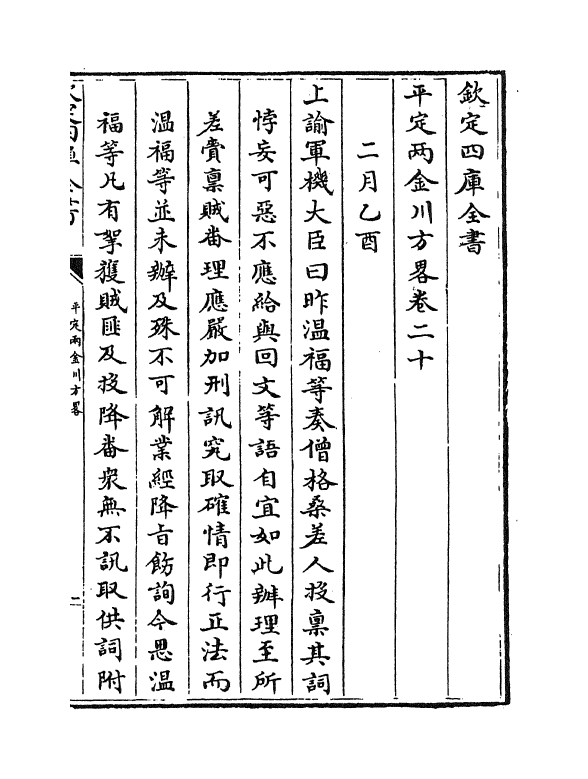 欽定四庫全書
平定兩金川方畧卷二十
二月乙酉
上諭軍機大臣曰昨温福等奏僧格桑差人投稟其詞
悖妄可惡不應給與回文等語自宜如此辦理至所
差賫稟賊番理應嚴加刑訊究取確情即行正法而
温福等並未辦及殊不可解業經降㫖飭詢今思温
福等凡有拏獲賊匪及投降番衆無不訊取供詞附
平定兩金川方畧